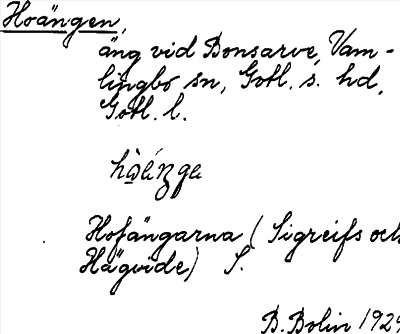 Hoängen,
äng vid Bonsarve, Vam-
lingbo sn, Gotl. s. hd,
Gotl. l.
Hofängarna (Sigreifs och
Hägvide) S.
B. Bolin 1924